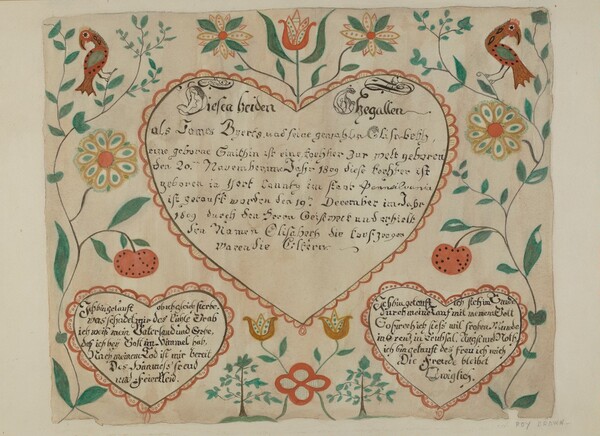 Diesen beiden Ehegatten
als James Byerts und seine gemahlin Elisabeth
eine geborne Smithin ist eine tochter zur welt geboren
den 20ten November im Jahr 1809 diese tochter ist
geboren in York County im staat Pennsilvania
ist getauft worden den 19ten December im Jahr
1809 durch den Herrn und erhielt
den Namen Elisabeth die taufzeugen
waren die Eltern
Ich bin getauft ob ich gleich sterbe
was schadet mir das kühle Grab
ich weis mein Vaterland und Erbe
das ich bey Gott im Himmel hab
Nach meinem Tod ist mir bereit
Des Himmels freud
und Feierkleid
Ich bin getauft ich steh im Bunde
Durch meine tauf mit meinem Gott
So sprech ich stets mit frohem Munde
in Creutz in Trübsal, Angst und Noth
ich bin getauft des freu ich mich
Die Freude bleibet
Ewiglich